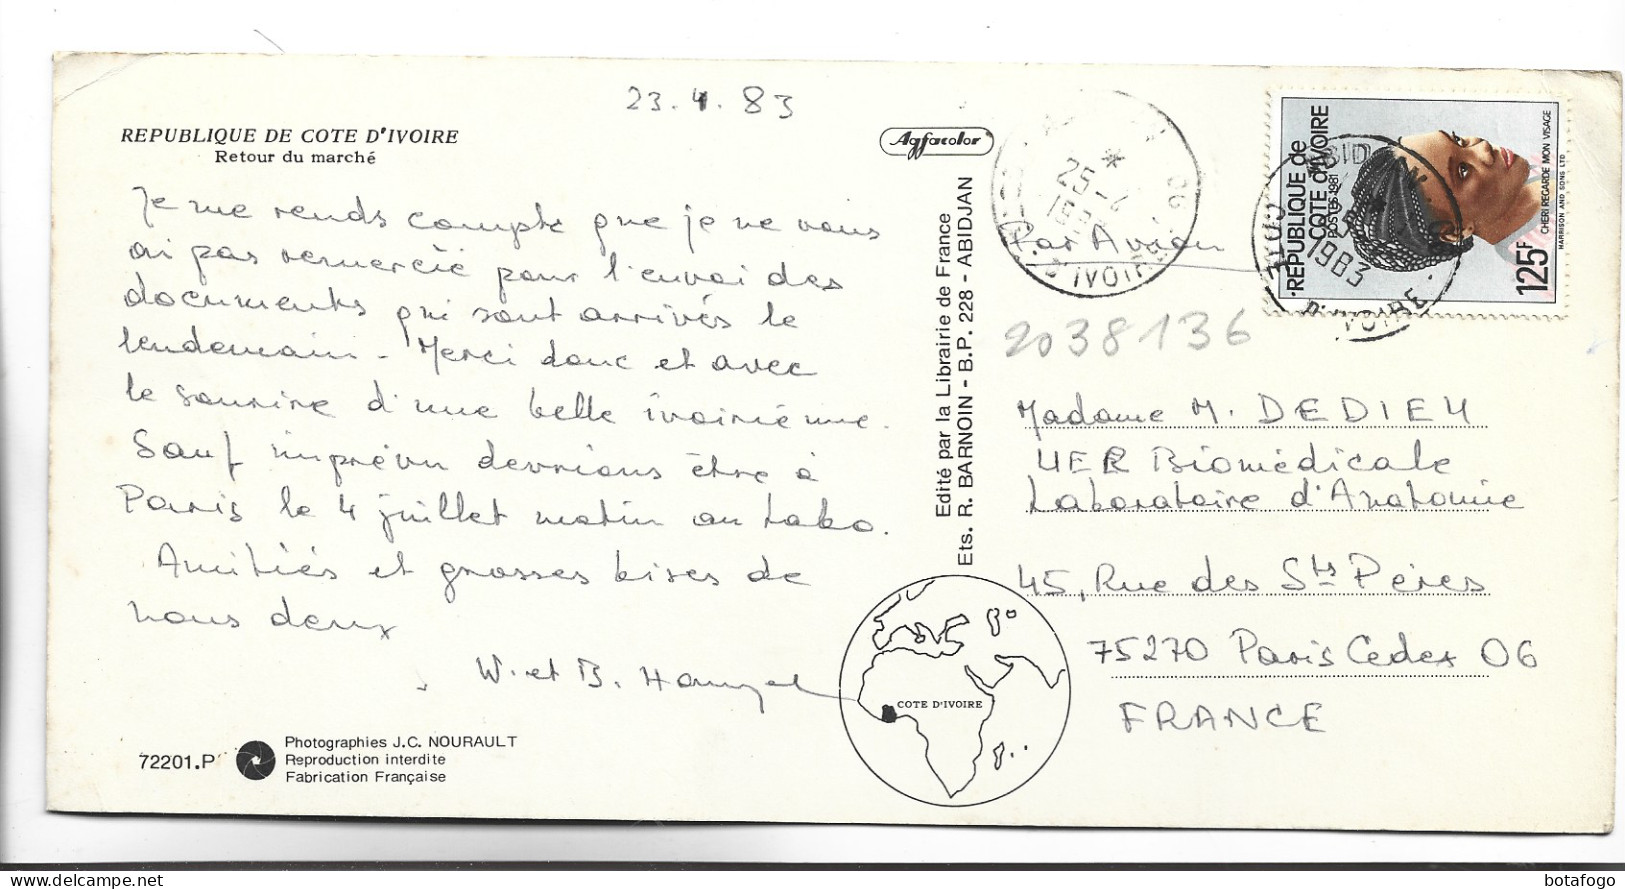 23.4.83
REPUBLIQUE DE COTE D'IVOIRE
Retour du marché
Je me rends compte que je ne vous
ai pas remercié pour l'envoi des
documents qui sont arrivés le
lendemain - Merci donc et avec
le sourire d'une belle ivoirienne.
Sauf imprévu devrions être à
Paris le 4 juillet matin au labo.
Amitiés et grosses bises de
nous deux
W. et B.
72201.P
Photographies J.C. NOURAULT
Reproduction interdite
Fabrication Française
Agfacolor
Edité par la Librairie de France
Ets. R. BARNOIN - B.P. 228 - ABIDJAN
COTE D'IVOIRE
Par Avion
25-4
D'IVOIRE
REPUBLIQUE de
COTE d'IVOIRE
POSTES 1981
125F
CHERI REGARDE MON VISAGE
HARRISON AND SONS LTD
COTE
1983
D'IVOIRE
2038136
Madame M. DEDIEU
UER Biomédicale
Laboratoire d'Anatomie
45, Rue des Sts Pères
75270 Paris Cedex 06
FRANCE
botafogo